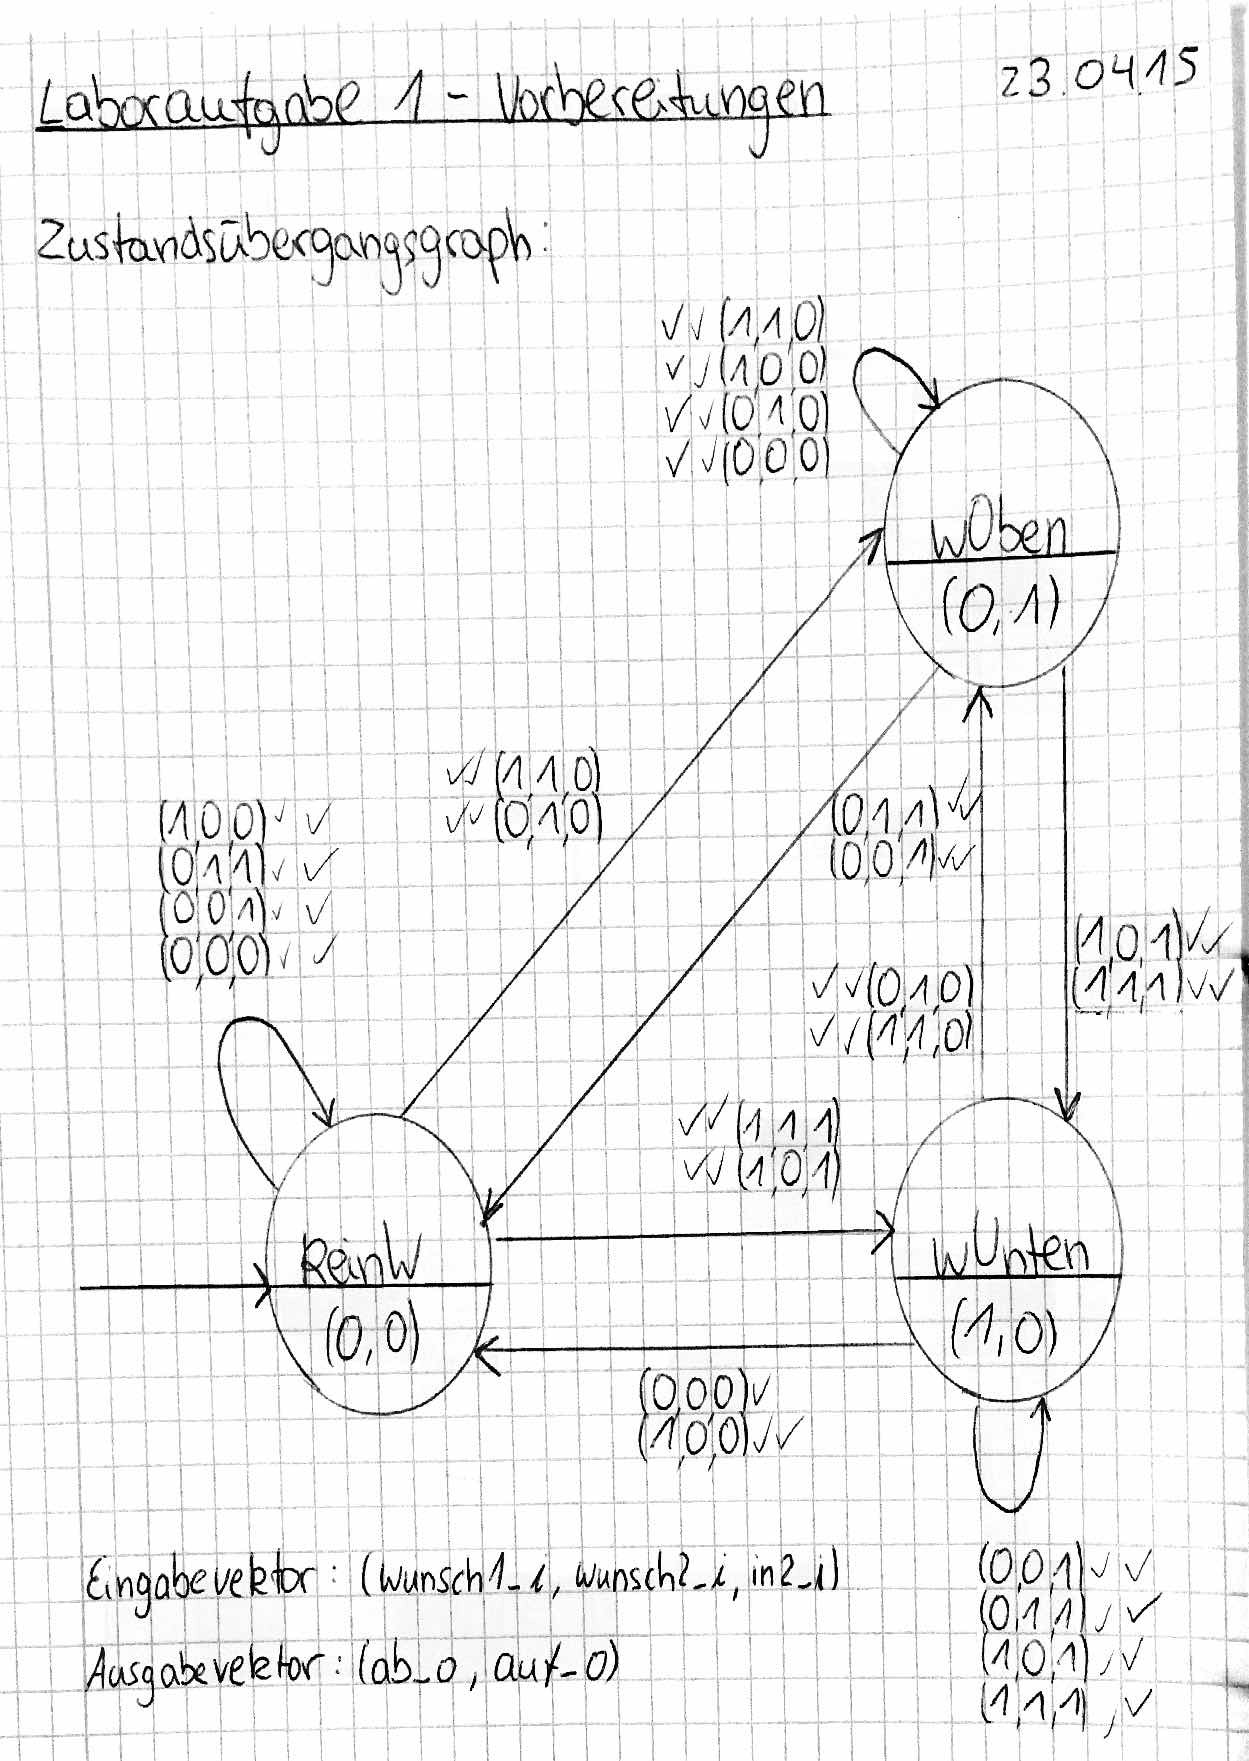 Laboraufgabe 1 - Vorbereitungen 23.04.15
Zustandsübergangsgraph:
✓✓(1,1,0)
✓✓(1,0,0)
✓✓(0,1,0)
✓✓(0,0,0)
wOben
(0,1)
✓✓(1,1,0)
✓✓(0,1,0)
(1,0,0)✓✓
(0,1,1)✓✓
(0,0,1)✓✓
(0,0,0)✓✓
(0,1,1)✓✓
(0,0,1)✓✓
(1,0,1)✓✓
(1,1,1)✓✓
✓✓(0,1,0)
✓✓(1,1,0)
✓✓(1,1,1)
✓✓(1,0,1)
KeinW
(0,0)
wUnten
(1,0)
(0,0,0)✓
(1,0,0)✓✓
Eingabevektor: (wunsch1_i, wunsch2_i, in2_i)
Ausgabevektor: (ab_o, auf_o)
(0,0,1)✓✓
(0,1,1)✓✓
(1,0,1)✓✓
(1,1,1)✓✓